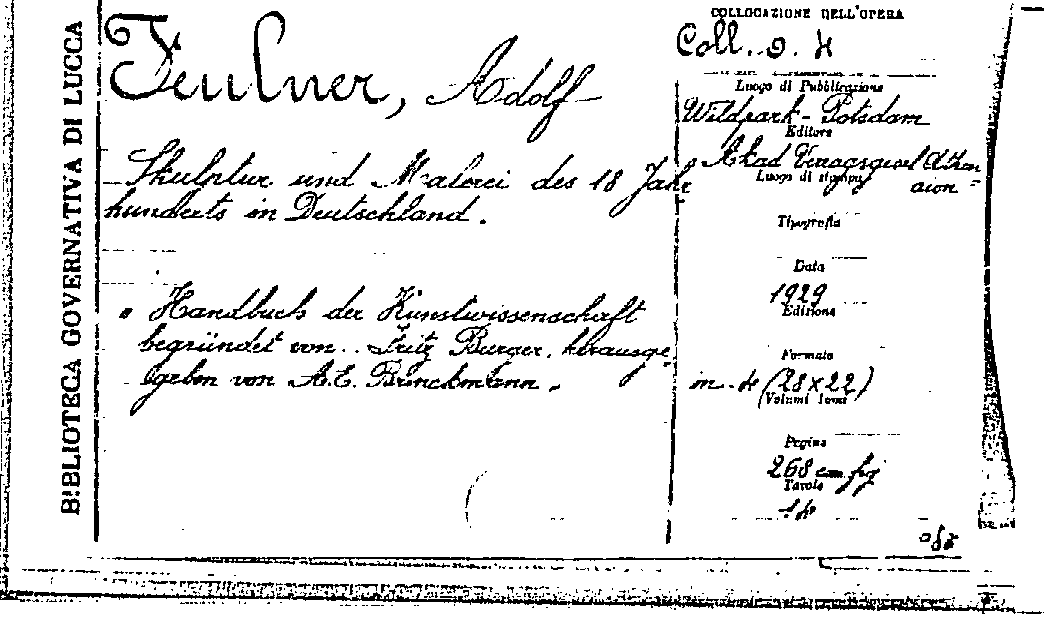 BIBLIOTECA GOVERNATIVA DI LUCCA
Feulner, Adolf
Skulptur und Malerei des 18 Jahr
hunderts in Deutschland.
" Handbuch der Kunstwissenschaft
begründet von .. Fritz Burger, herausge,
geben von A.E. Brinckmann ".
COLLOCAZIONE DELL'OPERA
Coll. 9. 4
Luogo di Pubblicazione
Wildpark - Potsdam
Editore
Akad Verlagsgesel Athen
aion =
Luogo di stampa
Tipografia
Data
1929
Edizione
Formato
in-4 (28x22)
Volumi tomi
Pagine
268 con fig
Tavole
14